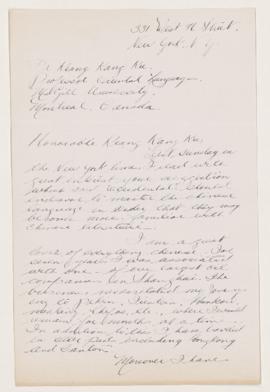 331 West 76 Street.
New York. N. Y.
Dr Kiang Kang Hu.
Professor Oriental Languages
McGill University.
Montreal. Canada.
Honorable Kiang Kang Hu,
Last Sunday in
the New York Times I read with
great interest your suggestion
that Occidentals should
endeavor to master the Chinese
language in order that they may
become more familiar with
Chinese literature.
I am a great
lover of everything Chinese. For
seven years I was associated
with one of our largest oil
companies in Shanghai. The
business necessitated my
to Pekin, Tientsin, Hankow,
etc., where I would
remain for months at a time.
In addition to this I have traveled
in the East including Hong Kong
and Canton.
Moreover I have